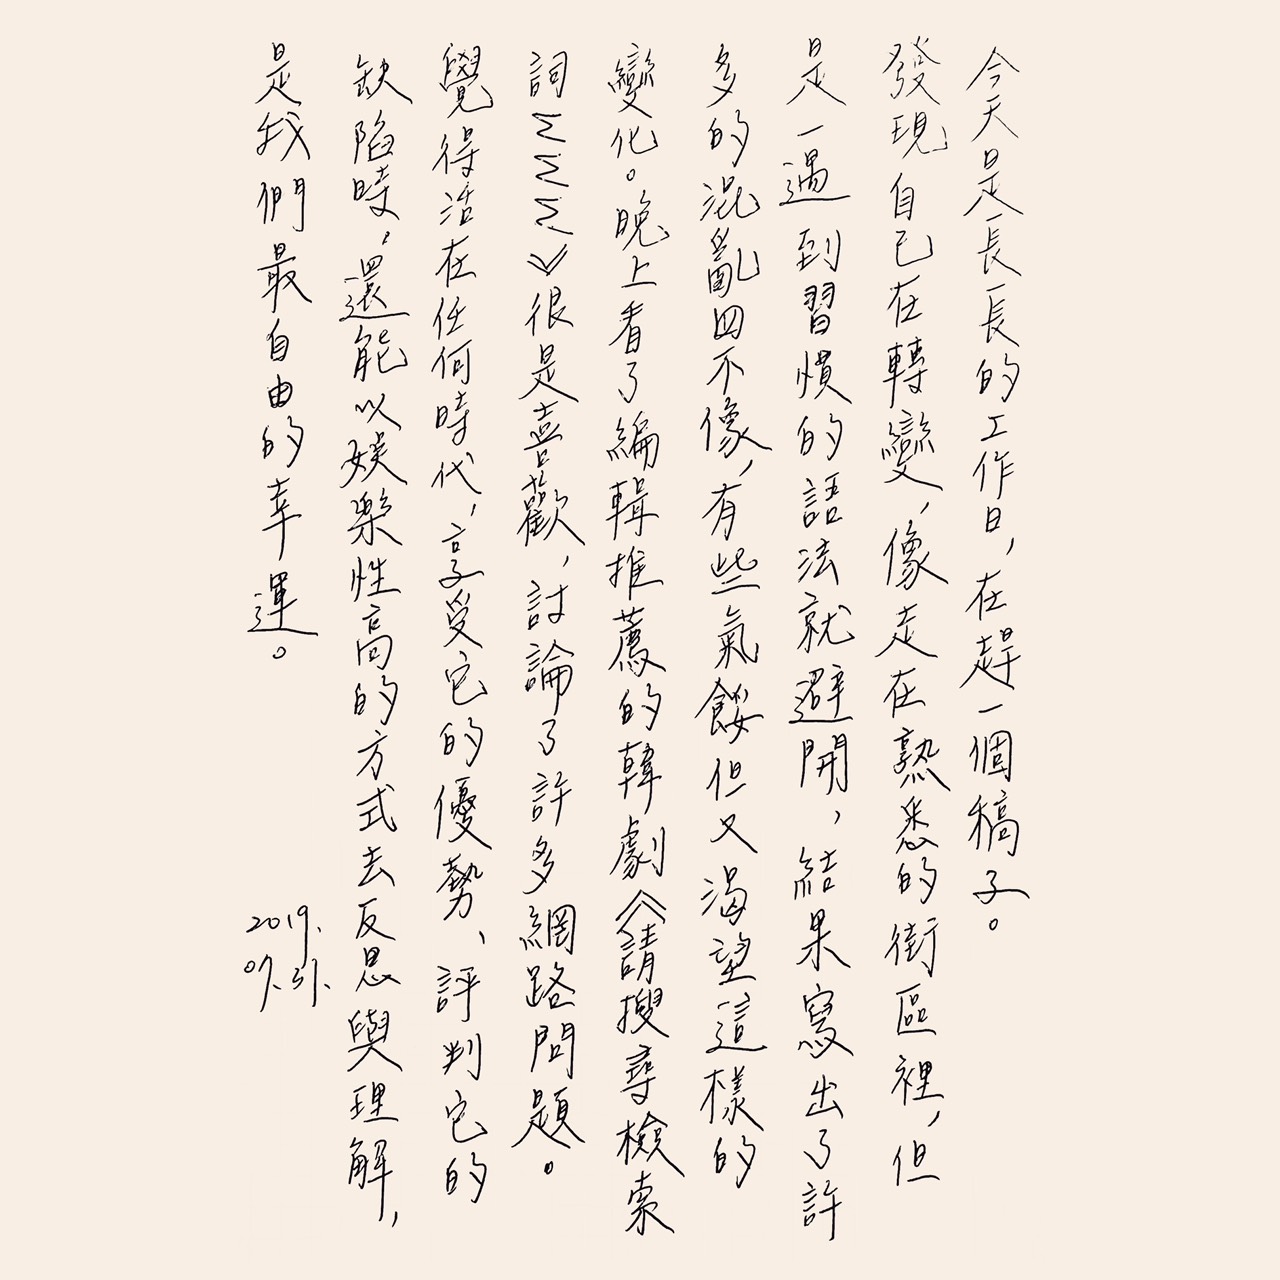 今天是長長的工作日，在趕一個稿子。
發現自己在轉變，像走在熟悉的街區裡，但
是一遇到習慣的語法就避開，結果寫出了許
多的混亂四不像，有些氣餒但又渴望這樣的
變化。晚上看了編輯推薦的韓劇《請搜尋檢索
詞WWW》很是喜歡，討論了許多網路問題。
覺得活在任何時代，享受它的優勢、評判它的
缺陷時，還能以娛樂性高的方式去反思與理解，
是我們最自由的幸運。
2019.
07.31.